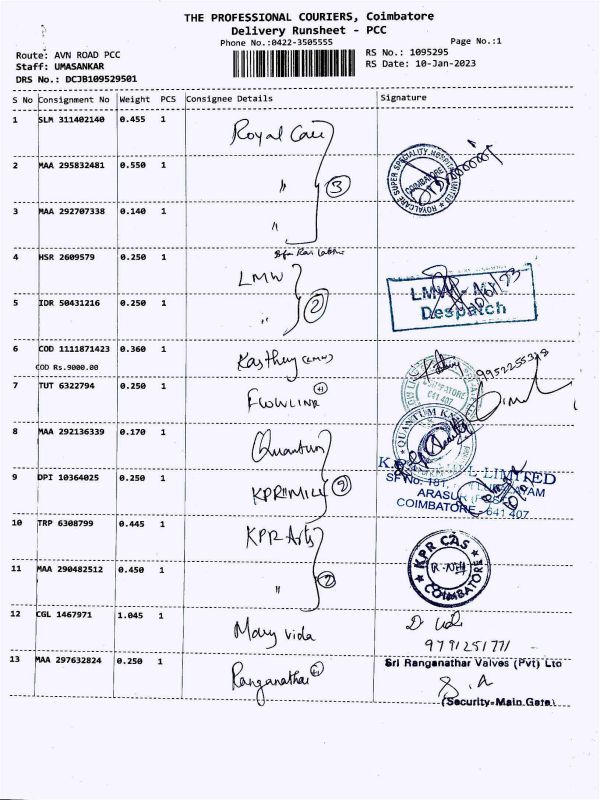 THE PROFESSIONAL COURIERS, Coimbatore
Delivery Runsheet - PCC
Phone No.:0422-3505555
Page No.:1
Route: AVN ROAD PCC
RS No.: 1095295
Staff: UMASANKAR
RS Date: 10-Jan-2023
DRS No.: DCJB109529501
S No Consignment No Weight PCS Consignee Details Signature
1 SLM 311402140 0.455 1 Royal Care
2 MAA 295832481 0.550 1 〃 3
ROYALCARE SUPER SPECIALITY HOSPITAL LIMITED
COIMBATORE
3 MAA 292707338 0.140 1 〃
4 HSR 2609579 0.250 1 LMW
LMW
Despatch
5 IDR 50431216 0.250 1 〃 2
6 COD 1111871423 0.360 1 Kasthury (LMW)
COD Rs.9000.00
7 TUT 6322794 0.250 1 FLOWLINK +1
641 407
8 MAA 292136339 0.170 1 Quantum
QUANTUM
9 DPI 10364025 0.250 1 KPR Mill
LIMITED
SF No. 181,
ARASUR
COIMBATORE - 641 407
10 TRP 6308799 0.445 1 KPR Arts
KPR CAS
COIMBATORE
11 MAA 290482512 0.450 1 〃 2
12 CGL 1467971 1.045 1 Mary vida
9791251771
13 MAA 297632824 0.250 1 Ranganathar +1
Sri Ranganathar Valves (Pvt) Ltd
(Security-Main Gate)